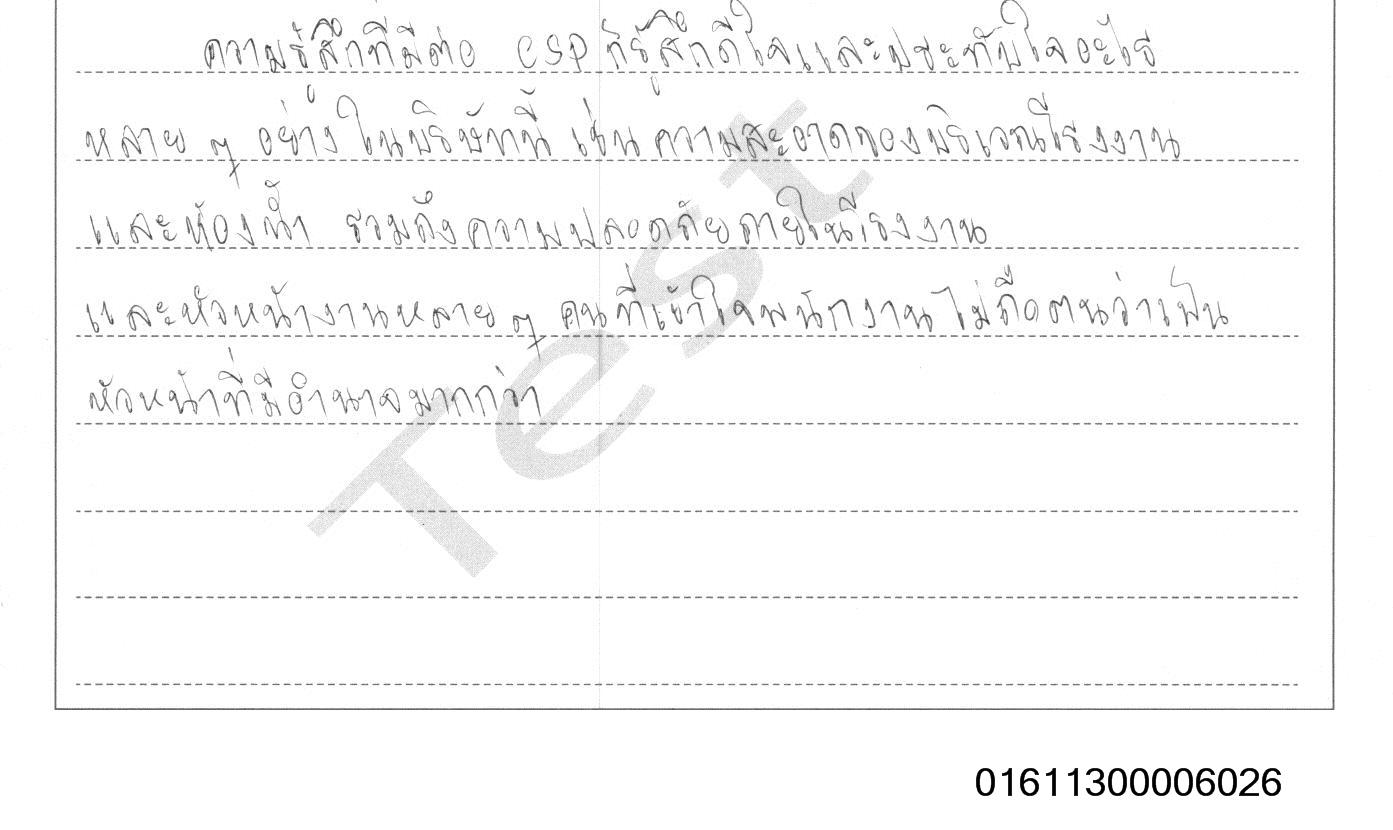 ความรู้สึกที่มีต่อ CSP ก็รู้สึกดีใจและประทับใจอะไร
หลาย ๆ อย่างในบริษัทนี้ เช่นความสะอาดของบริเวณโรงงาน
และห้องน้ำ รวมถึงความปลอดภัยภายในโรงงาน
และหัวหน้างานหลาย ๆ คนที่เข้าใจพนักงานไม่ถือตนว่าเป็น
หัวหน้าที่มีอำนาจมากกว่า
Test
01611300006026